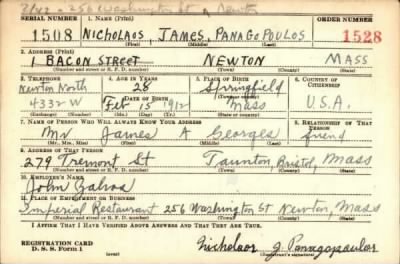 3/42 - 256 Washington St Newton
SERIAL NUMBER 1. NAME (Print) ORDER NUMBER
1508 NICHOLAOS, JAMES, PANAGOPOULOS 1528
(First) (Middle) (Last)
2. ADDRESS (Print)
1 BACON STREET NEWTON MASS
(Number and street or R. F. D. number) (Town) (County) (State)
3. TELEPHONE 4. AGE IN YEARS 5. PLACE OF BIRTH 6. COUNTRY OF CITIZENSHIP
Newton North 28 Springfield
DATE OF BIRTH (Town or county)
4332 W Feb 15 1912 Mass U.S.A.
(Exchange) (Number) (Mo.) (Day) (Yr.) (State or country)
7. NAME OF PERSON WHO WILL ALWAYS KNOW YOUR ADDRESS 8. RELATIONSHIP OF THAT PERSON
Mr James A Georges friend
(Mr., Mrs., Miss) (First) (Middle) (Last)
9. ADDRESS OF THAT PERSON
279 Tremont St Taunton, Bristol, Mass
(Number and street or R. F. D. number) (Town) (County) (State)
10. EMPLOYER'S NAME
John
11. PLACE OF EMPLOYMENT OR BUSINESS
Imperial Restaurant 256 Washington St Newton, Mass
(Number and street or R. F. D. number) (Town) (County) (State)
I AFFIRM THAT I HAVE VERIFIED ABOVE ANSWERS AND THAT THEY ARE TRUE.
REGISTRATION CARD
D. S. S. Form 1 (over) Nicholaos J. Panagopoulos
(Registrant's signature)